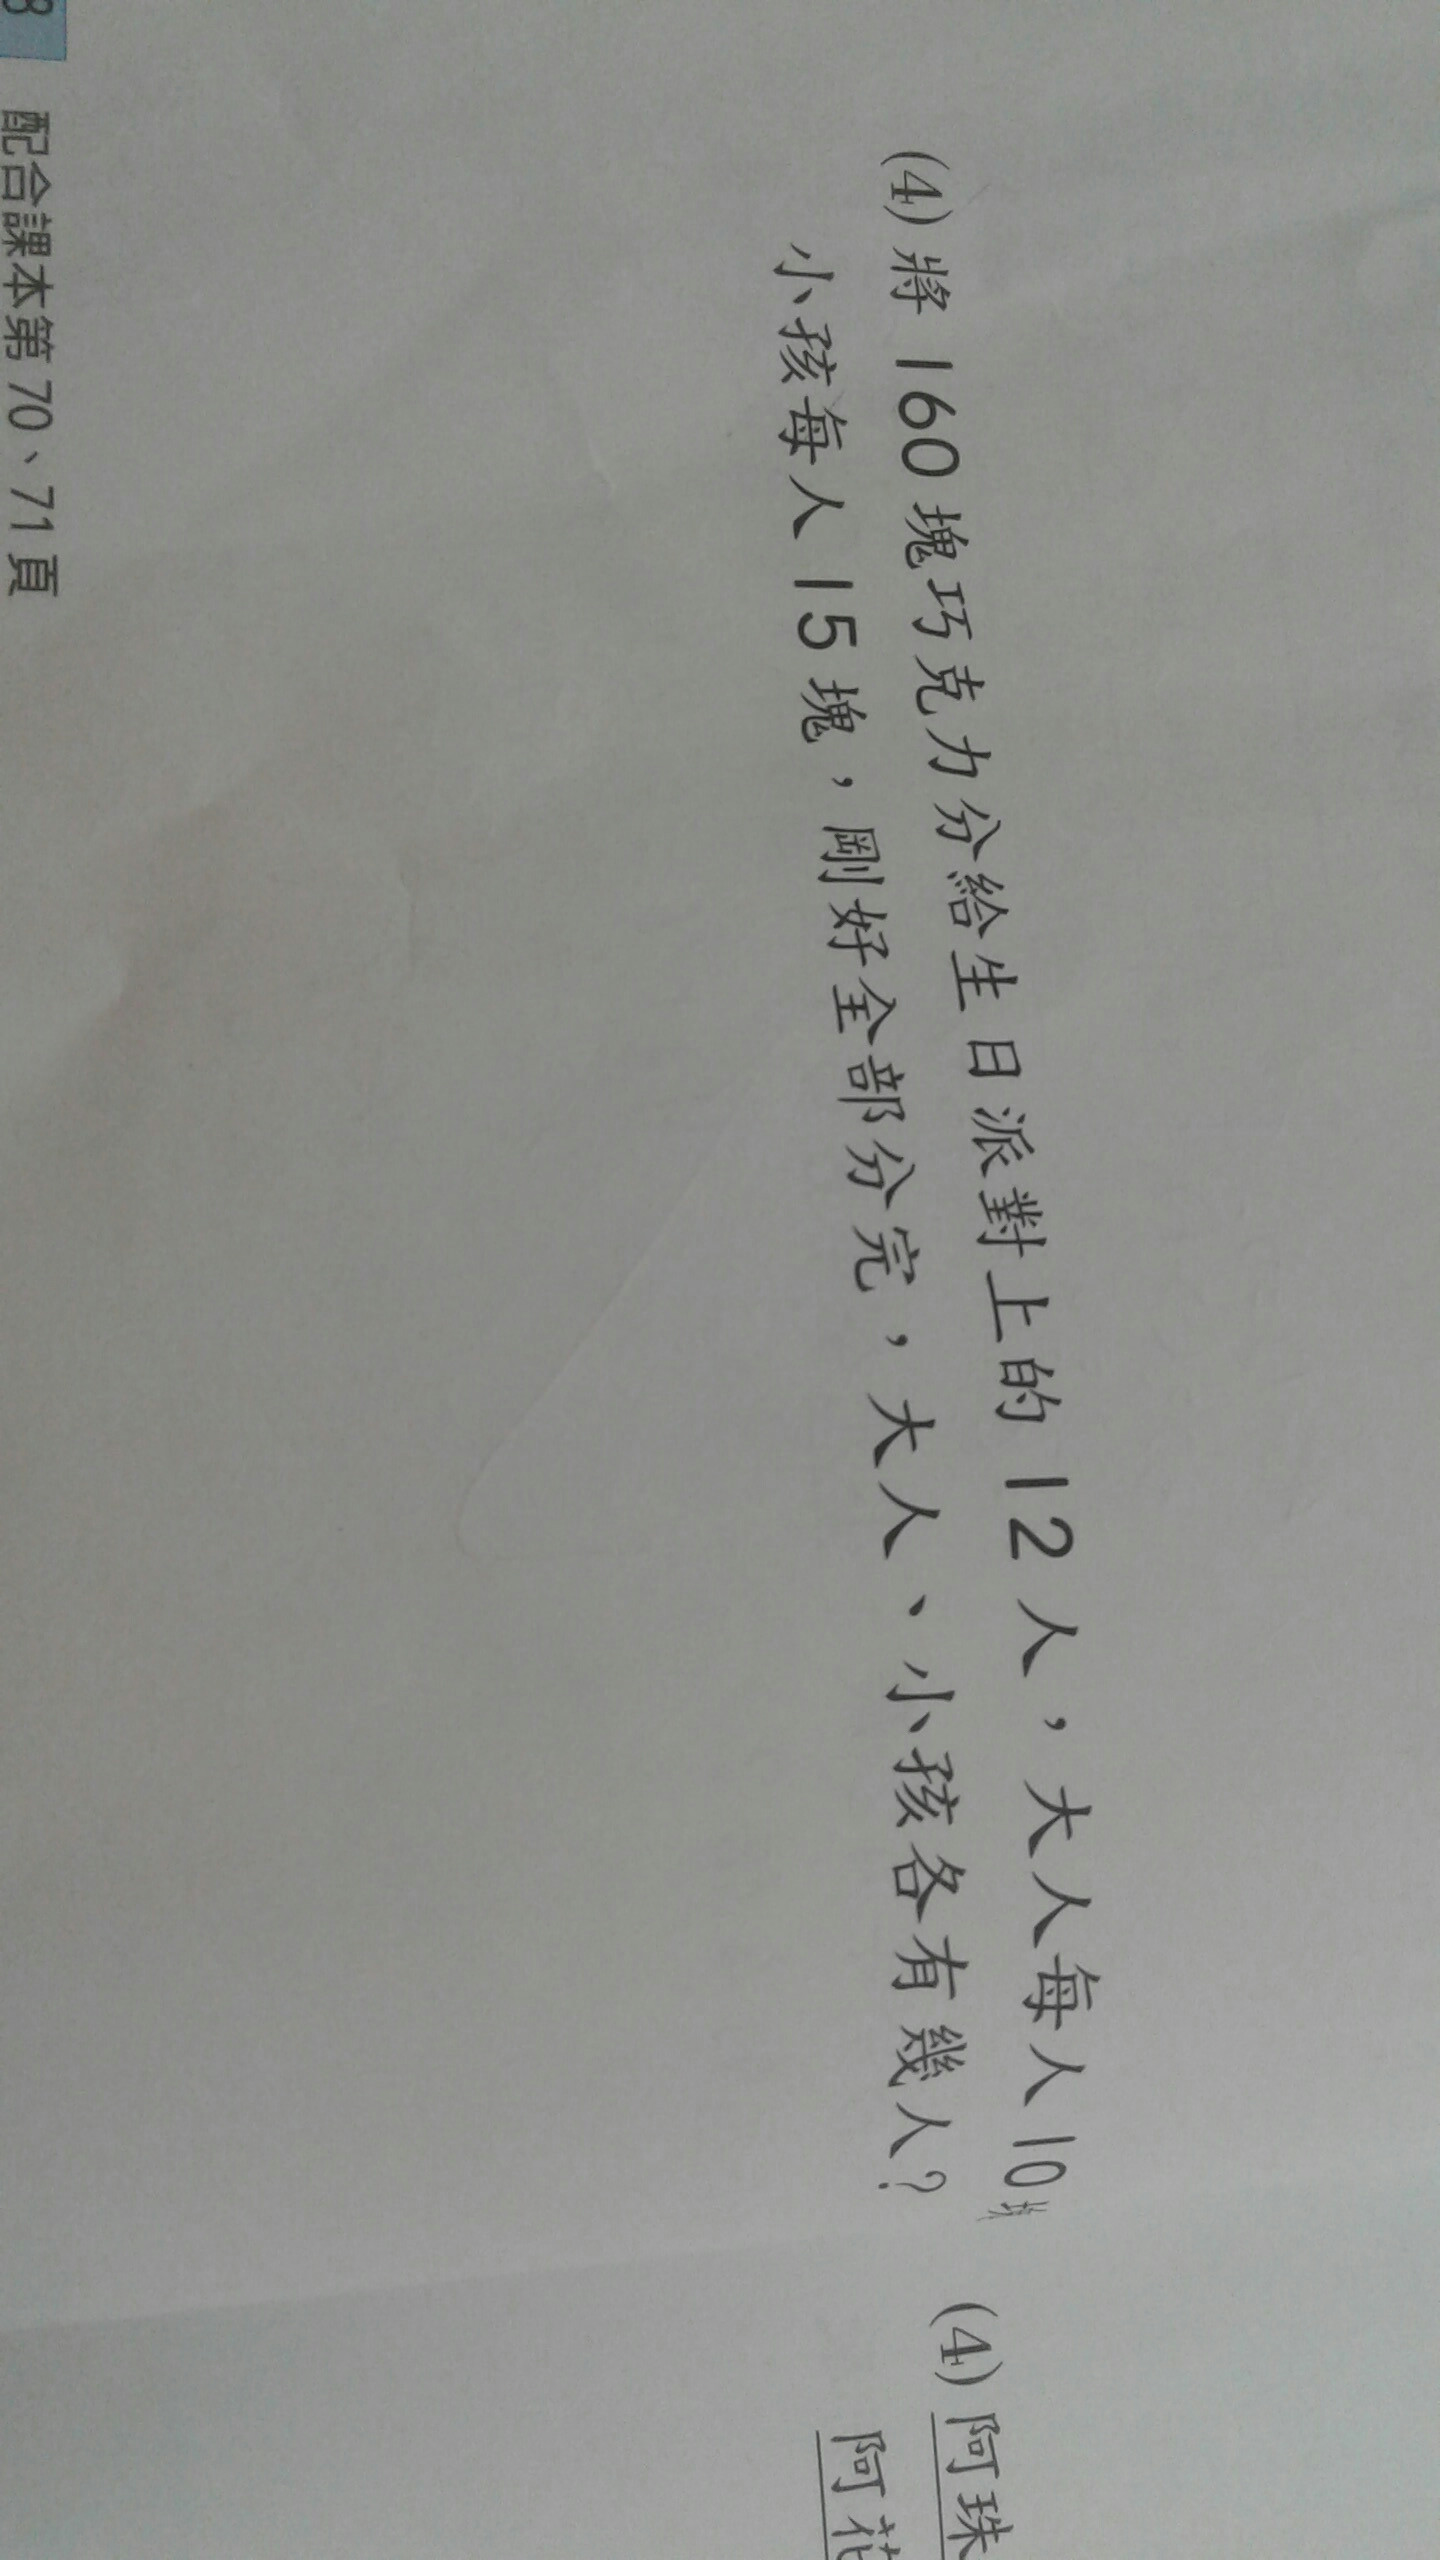 (4) 將 160 塊巧克力分給生日派對上的 12 人，大人每人 10 塊
小孩每人 15 塊，剛好全部分完，大人、小孩各有幾人？
(4) 阿珠
阿花
8 配合課本第 70、71 頁